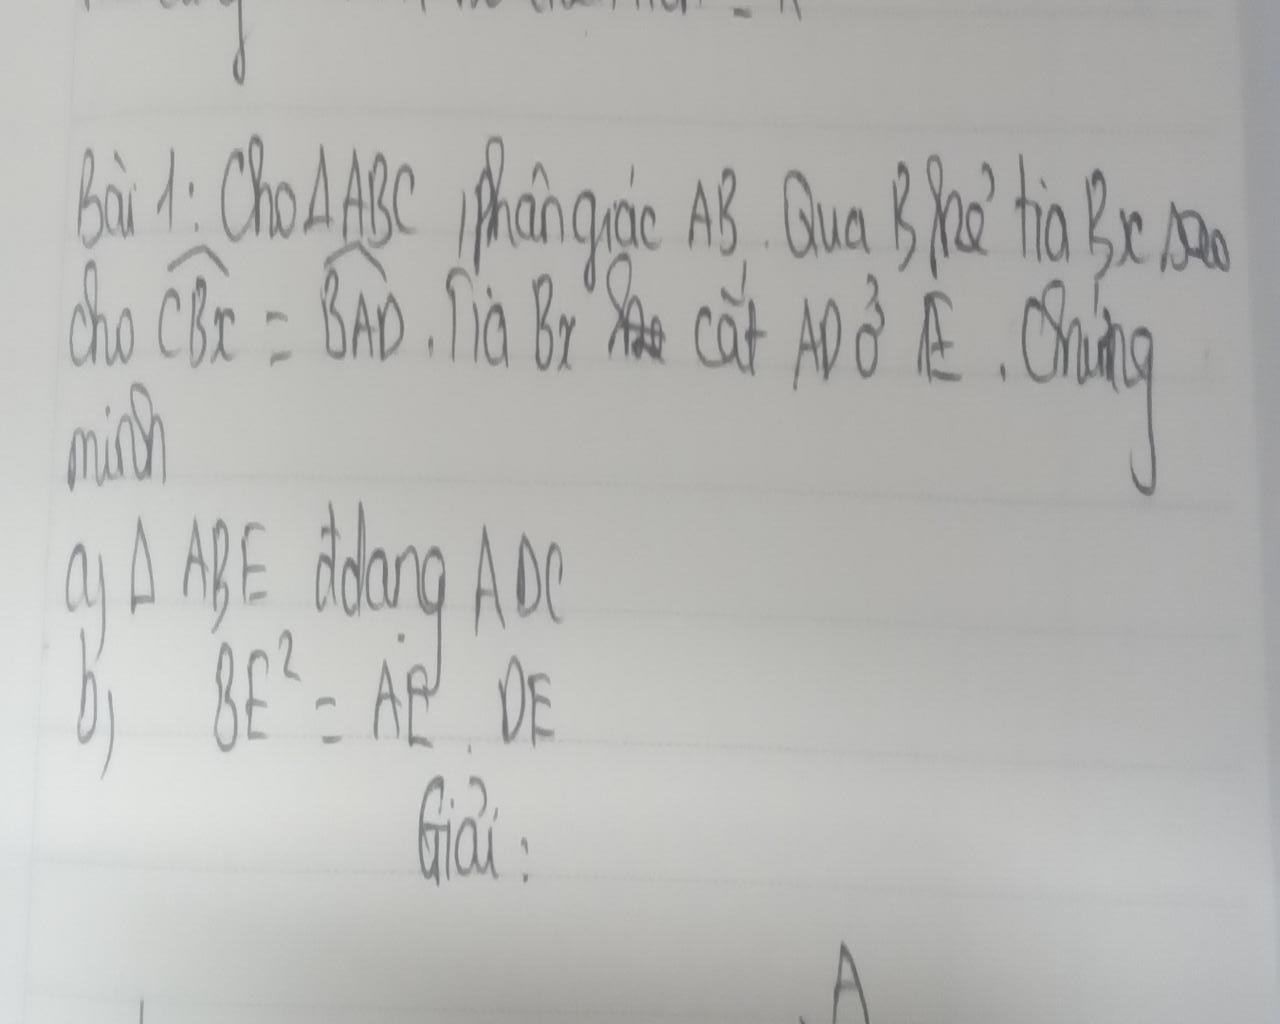 Bài 1: Cho Δ ABC, phân giác AB. Qua B kẻ tia Bx sao
cho CBx = BAD. Tia Bx cắt AD ở E. Chứng
minh
a) Δ ABE đdạng ADC
b, BE² = AE. DE
Giải:
A